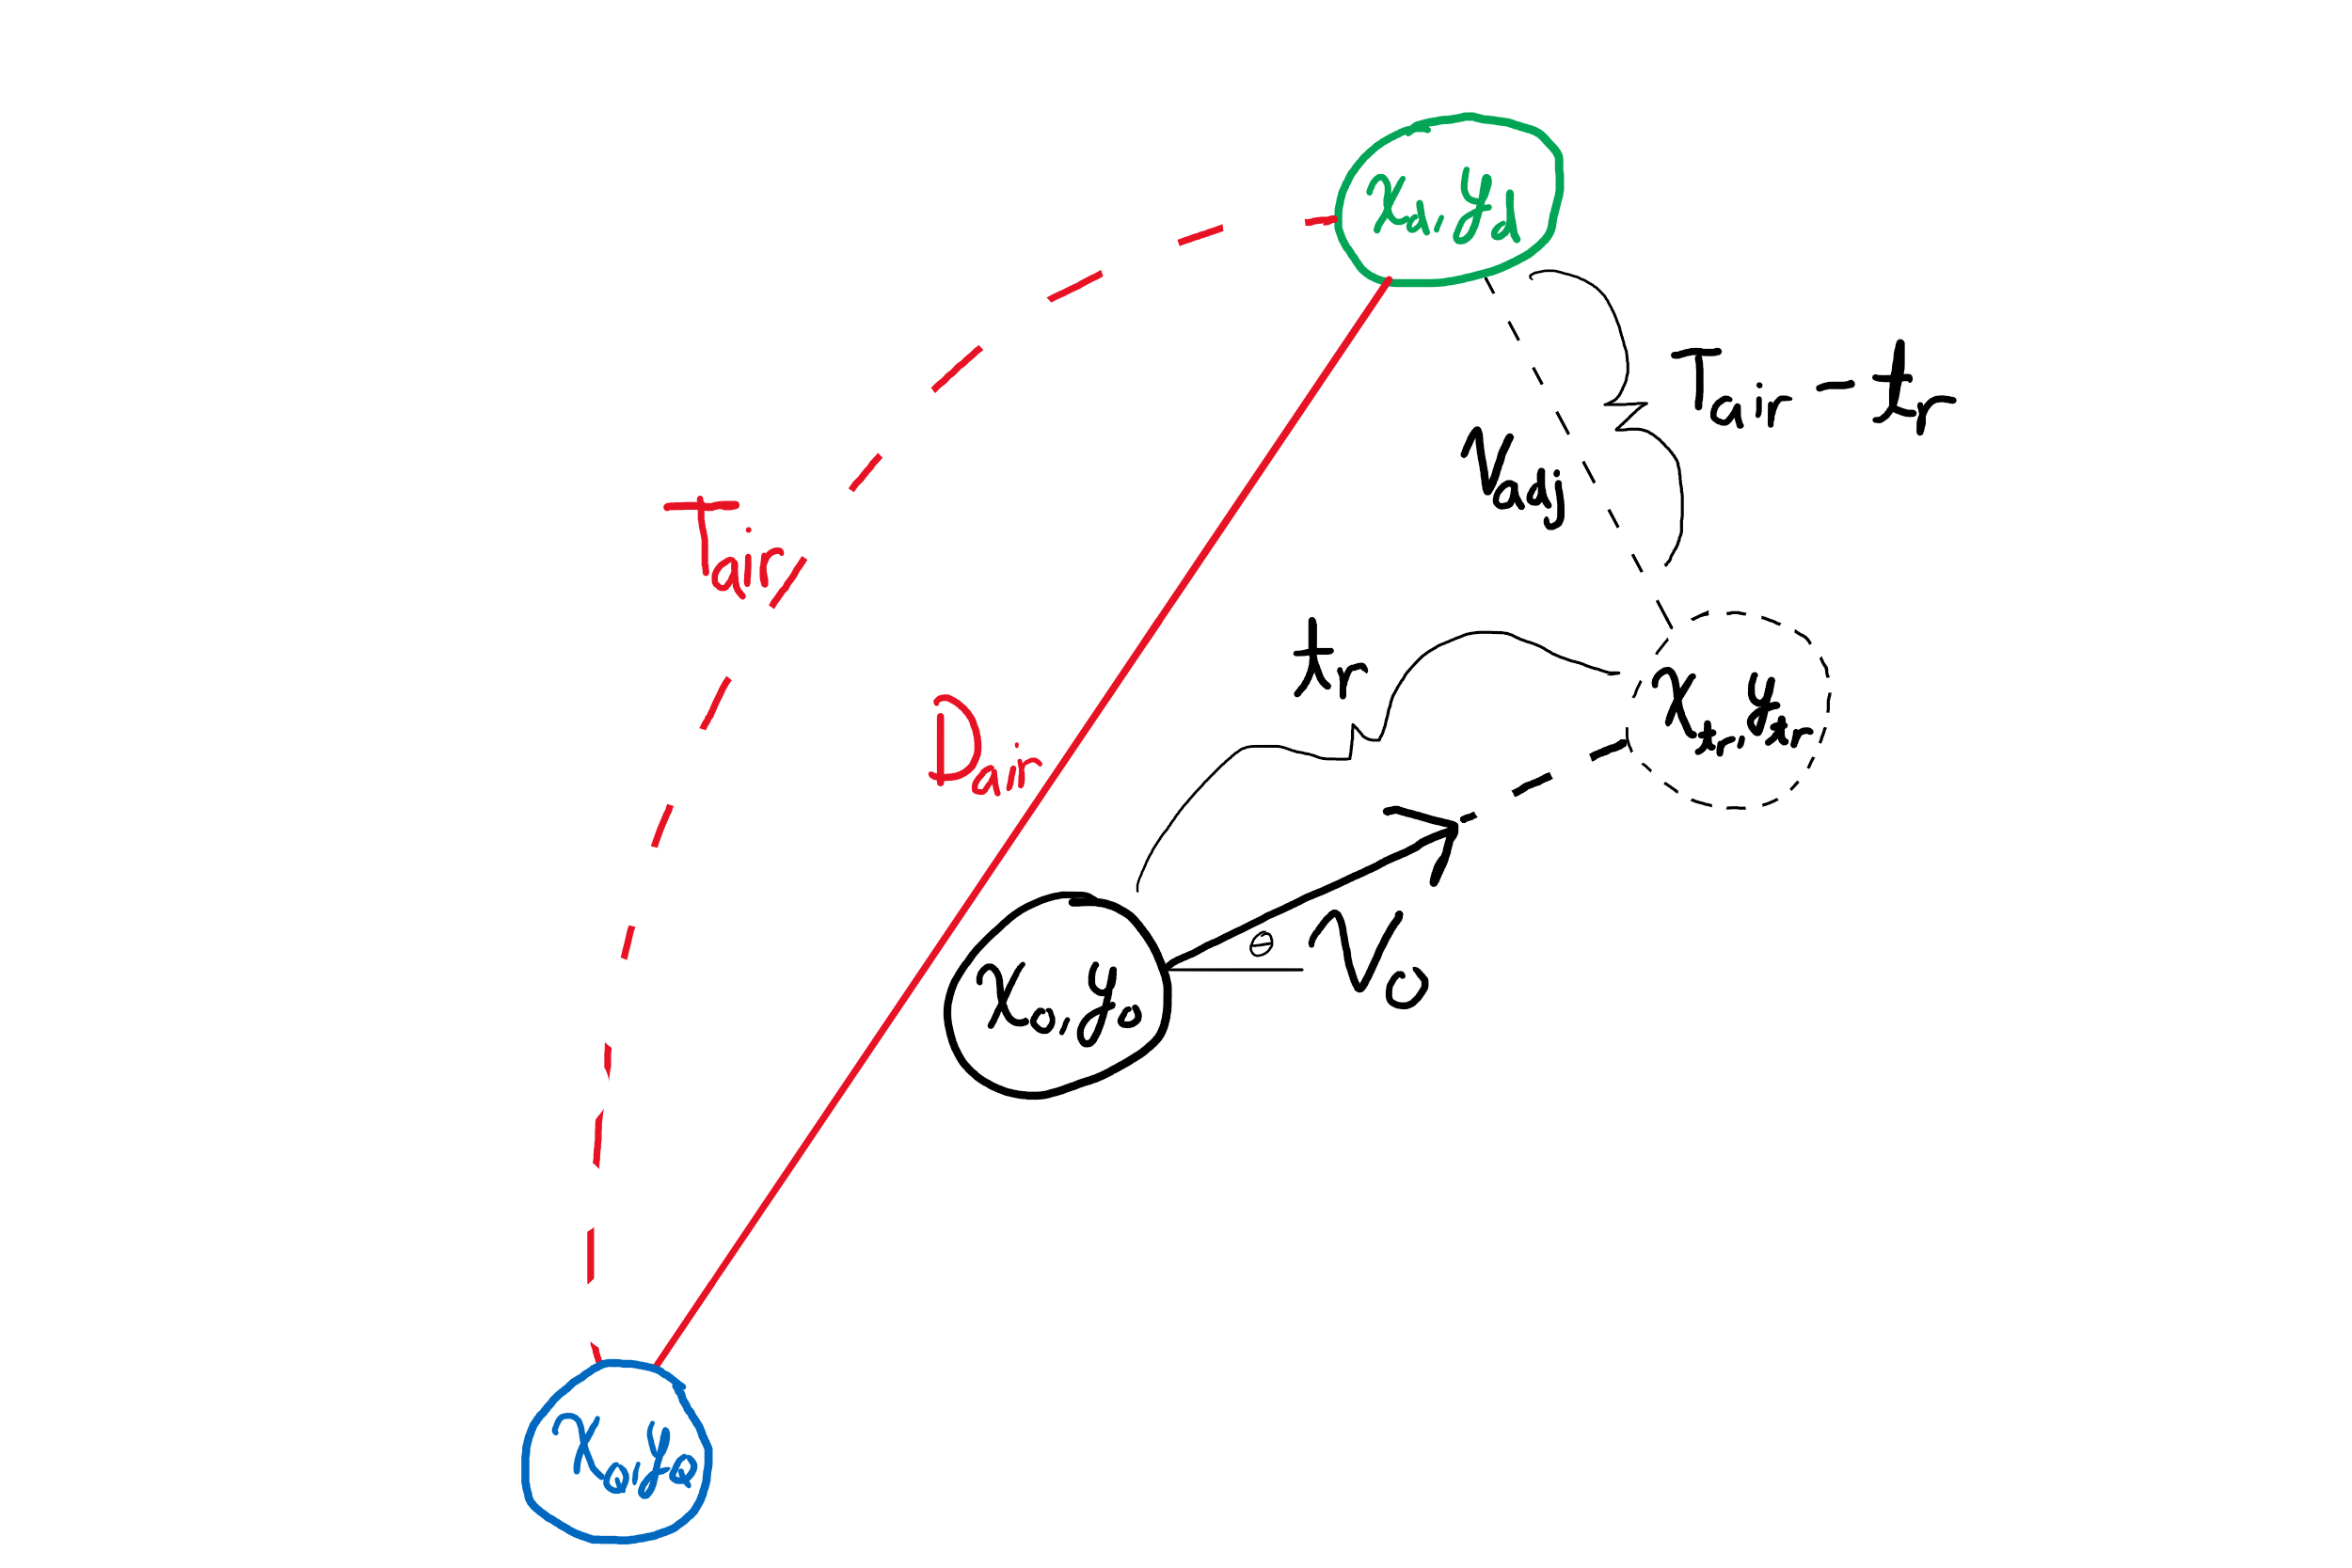 Xd, yd
Tair - tr
Vadj
Tair
tr
Xtr, ytr
Dair
θ
V0
X0, y0